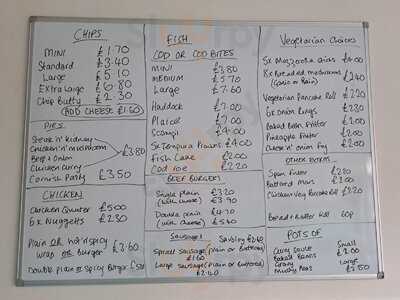 CHIPS
MINI £1.70
Standard £3.40
Large £5.10
Extra Large £6.80
Chip Butty £2.30
ADD CHEESE £1.60
PIES
Steak 'n' kidney
Chicken 'n' mushroom
Beef + Onion £3.80
Chicken Curry
Cornish Pasty £3.50
CHICKEN
Chicken Quarter £5.00
6x Nuggets £2.30
Plain or hot 'n' spicy
wrap or Burger £3.60
Double Plain or Spicy Burger
FISH
COD OR COD BITES
MINI £3.80
MEDIUM £5.70
Large £7.60
Haddock £7.00
Plaice £7.00
Scampi £4.00
5x Tempura Prawns £4.00
Fish Cake £2.00
Cod roe £2.20
BEEF BURGERS
Single plain £3.20
(with cheese) £3.90
Double plain £4.70
(with cheese) £5.60
Sausages Saveloy
Small sausage (plain or battered)
£1.60
Large sausage (plain or battered)
£2.40
Vegetarian Choices
5x Mozzarella sticks
8x Breaded mushrooms
(Garlic or Plain) £2.40
Vegetarian Pancake Roll £2.20
6x Onion Rings £2.30
Baked Bean Fritter £2.00
Pineapple Fritter £2.00
Cheese 'n' onion
OTHER EXTRAS
Spam fritter £2.20
Battered Mars £2.00
Chicken Veg Pancake Roll £2.20
Bread + Butter Roll 60p
POTS OF
Curry Sauce Small
Baked Beans £2.00
Gravy Large
Mushy Peas